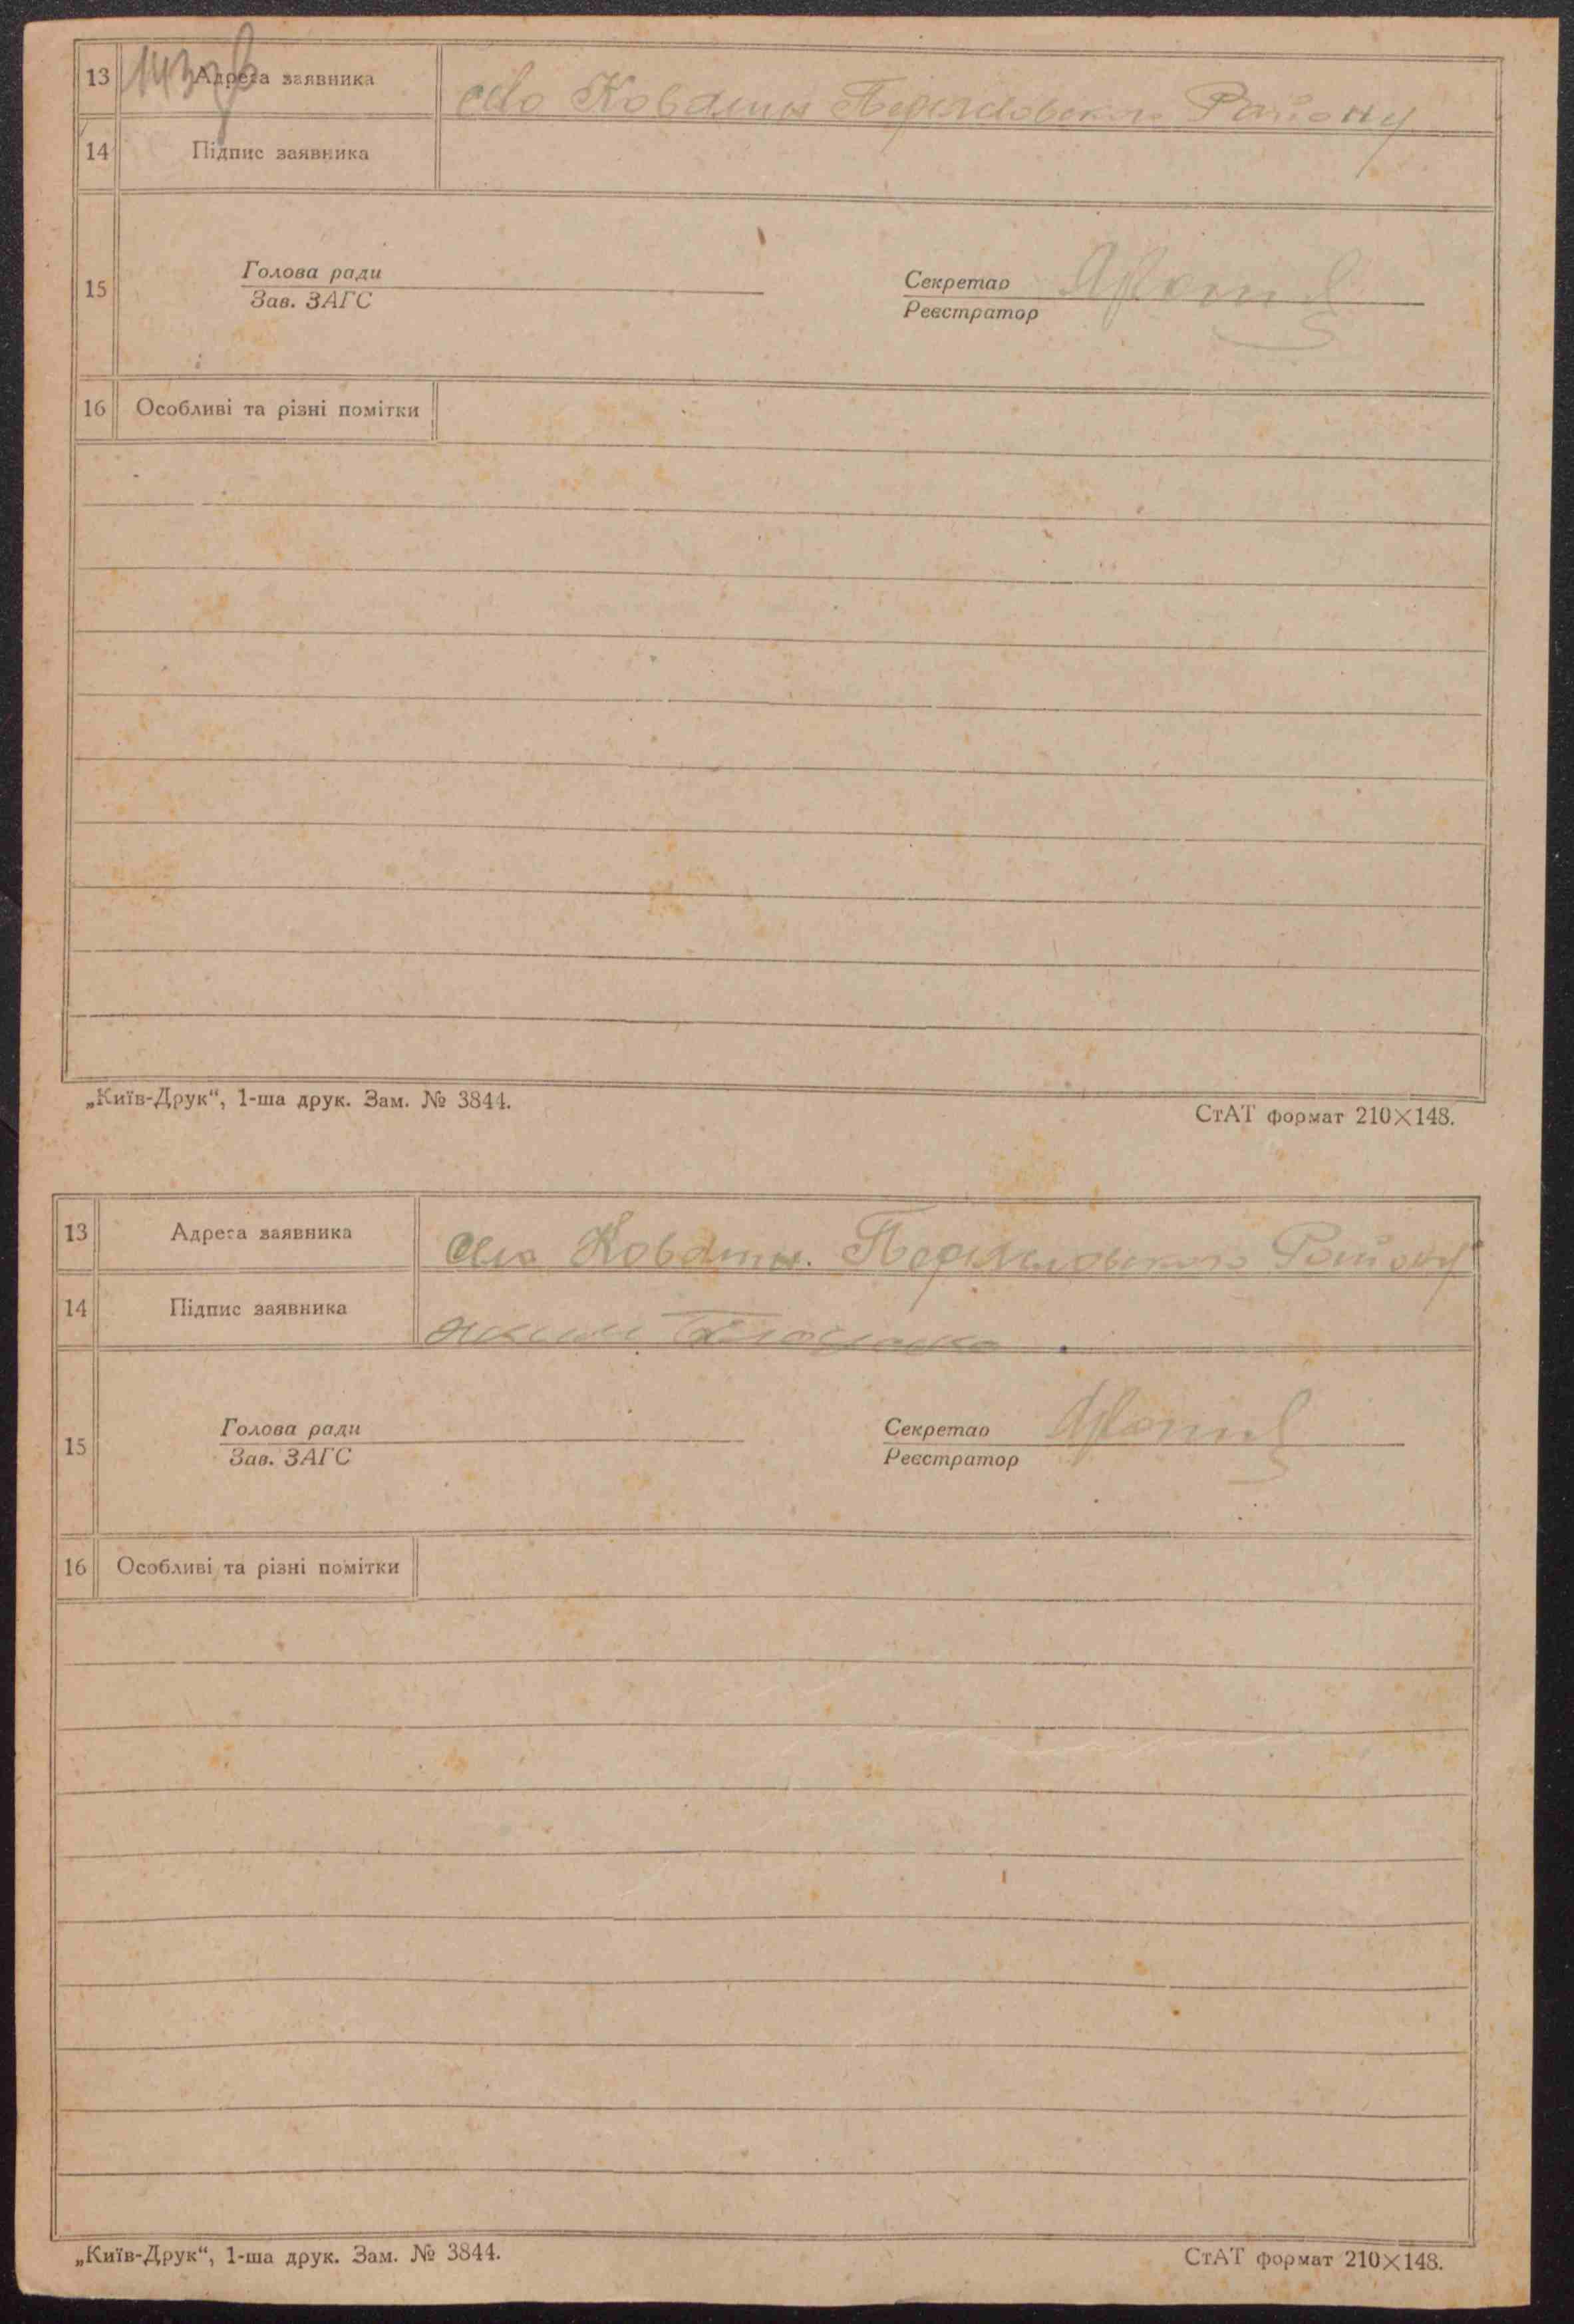 143зв
13 Адреса заявника село Ковалин Переяславского Району
14 Підпис заявника
15 Голова ради Секретар
Зав. ЗАГС Реєстратор
16 Особливі та різні помітки
„Київ-Друк“, 1-ша друк. Зам. № 3844. СтАТ формат 210×148.
13 Адреса заявника село Ковалин. Району
14 Підпис заявника
15 Голова ради Секретар
Зав. ЗАГС Реєстратор
16 Особливі та різні помітки
„Київ-Друк“, 1-ша друк. Зам. № 3844. СтАТ формат 210×148.